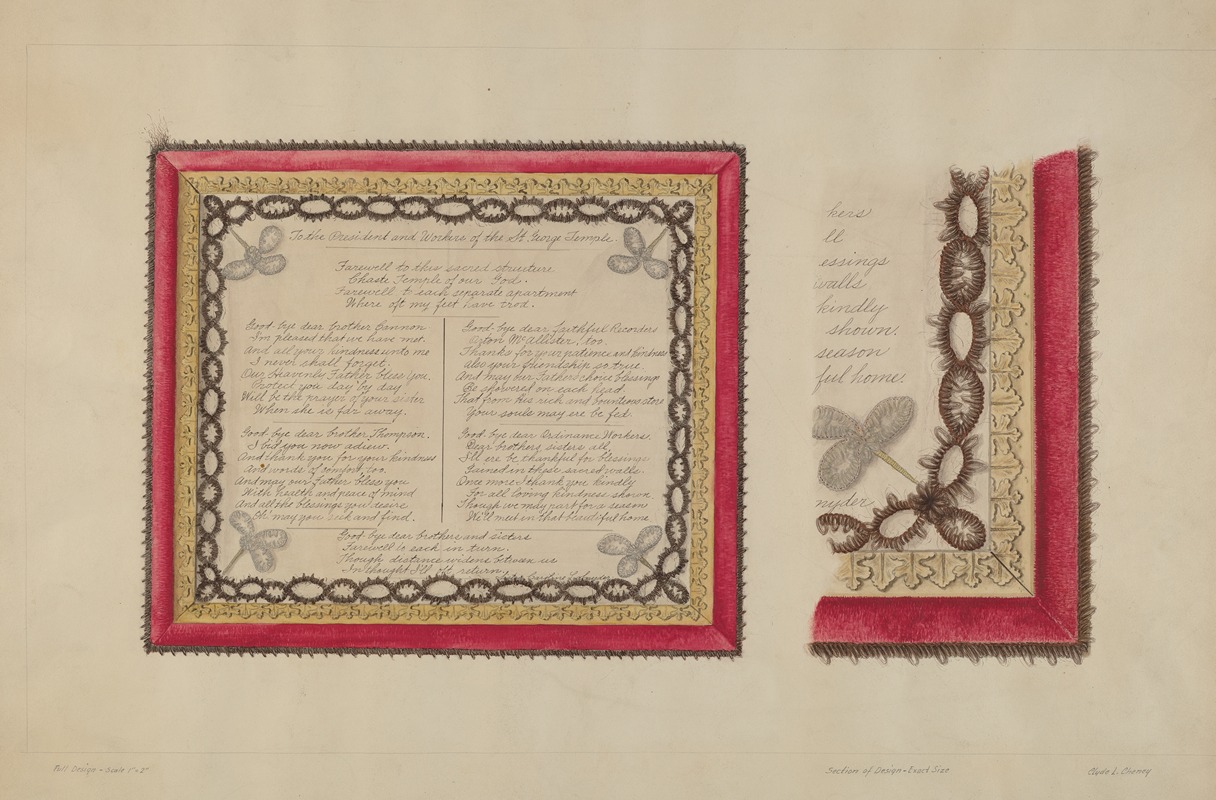 To the President and Workers of the St. George Temple.
Farewell to this sacred structure
Chaste Temple of our God.
Farewell to each separate apartment
Where oft my feet have trod.
Good-bye dear brother Cannon
I'm pleased that we have met.
And all your kindness unto me
I never shall forget.
Our Heavenly Father bless you.
Protect you day by day
Will be the prayer of your sister
When she is far away.
Good-bye dear brother Thompson.
I bid you now adieu.
And thank you for your kindness
And words of comfort, too.
And may our Father bless you
With health and peace of mind
And all the blessings you desire
Oh! may you seek and find.
Good-bye dear faithful Recorders
McAllister, too.
Thanks for your patience and kindness
Also your friendship so true.
And may our Father's choice blessings
Be showered on each head
That from His rich and bounteous store
Your souls may ere be fed.
Good-bye dear Ordinance Workers,
Dear brothers sisters all,
I'll ere be thankful for blessings
Gained in those sacred walls.
Once more I thank you kindly
For all loving kindness shown.
Though we may part for a season
We'll meet in that beautiful home
Good-bye dear brothers and sisters
Farewell to each in turn.
Though distance widens between us
In thought I'll oft return.
kers
ll
essings
walls
kindly
shown.
season
ful home.
nyder
Full Design - Scale 1"=2"
Section of Design - Exact Size
Clyde L. Cheney